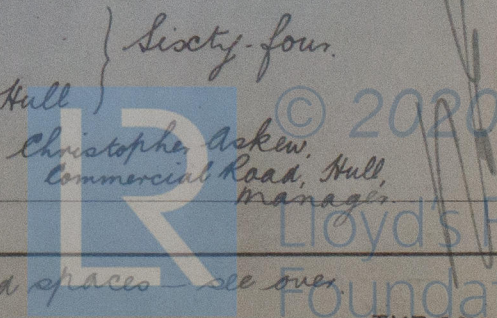 Sixty-four.
Hull
Christopher Askew,
Commercial Road, Hull,
Manager.
d spaces - see over.
LR
© 2020
Lloyd's
Foundat